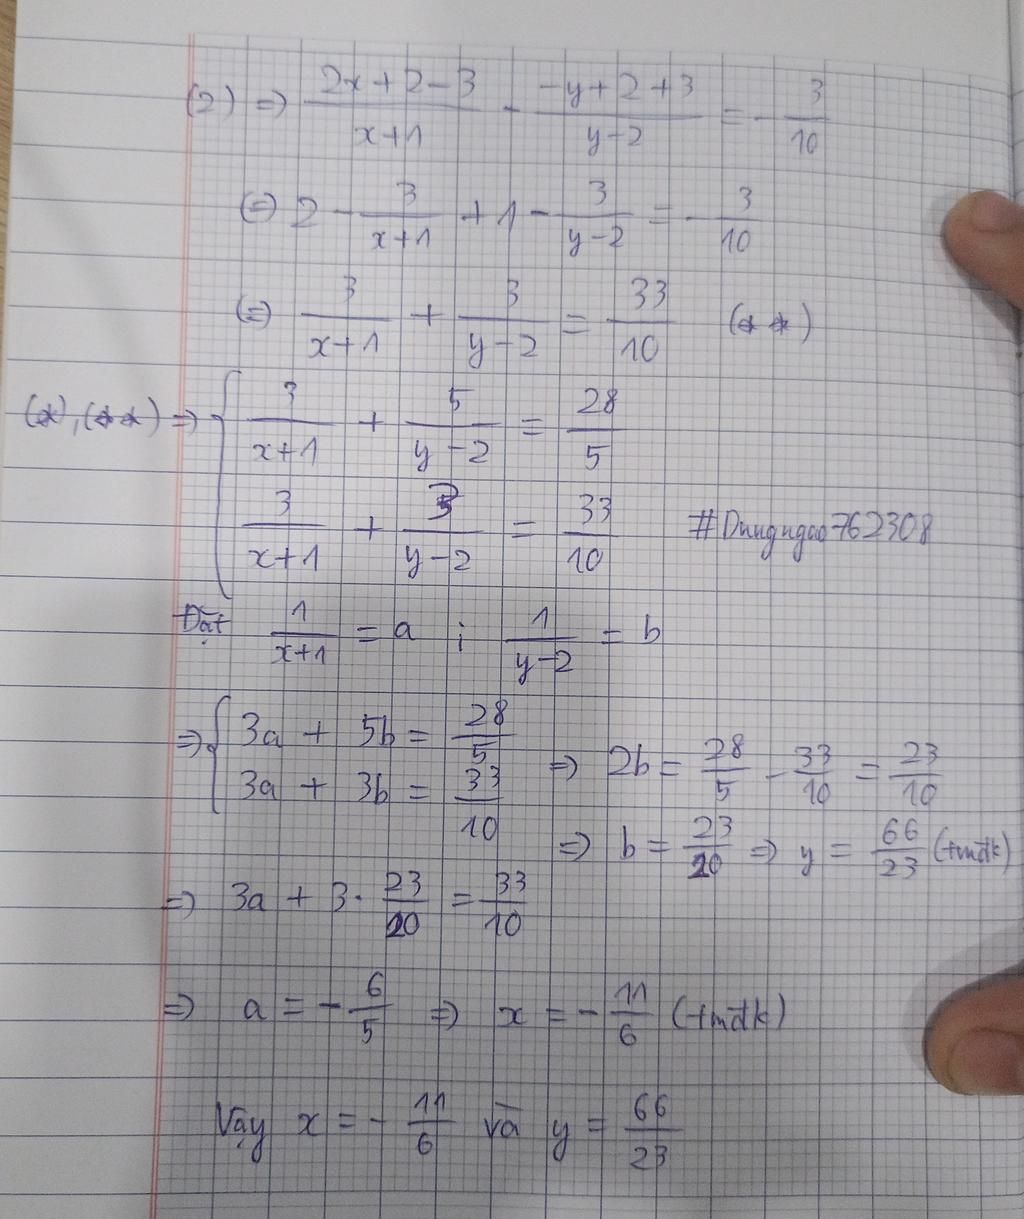 (2) => (2x+2-3)/(x+1) - (-y+2+3)/(y-2) = - 3/10
(=) 2 - 3/(x+1) + 1 - 3/(y-2) = - 3/10
(=) 3/(x+1) + 3/(y-2) = 33/10 (**)
(*), (**) => { 3/(x+1) + 5/(y-2) = 28/5
3/(x+1) + 3/(y-2) = 33/10 #Dungngao762308
Đặt 1/(x+1) = a ; 1/(y-2) = b
=> { 3a + 5b = 28/5 => 2b = 28/5 - 33/10 = 23/10
3a + 3b = 33/10 => b = 23/20 => y = 66/23 (tmđk)
=> 3a + 3. 23/20 = 33/10
=> a = - 6/5 => x = - 11/6 (tmđk)
Vậy x = - 11/6 và y = 66/23